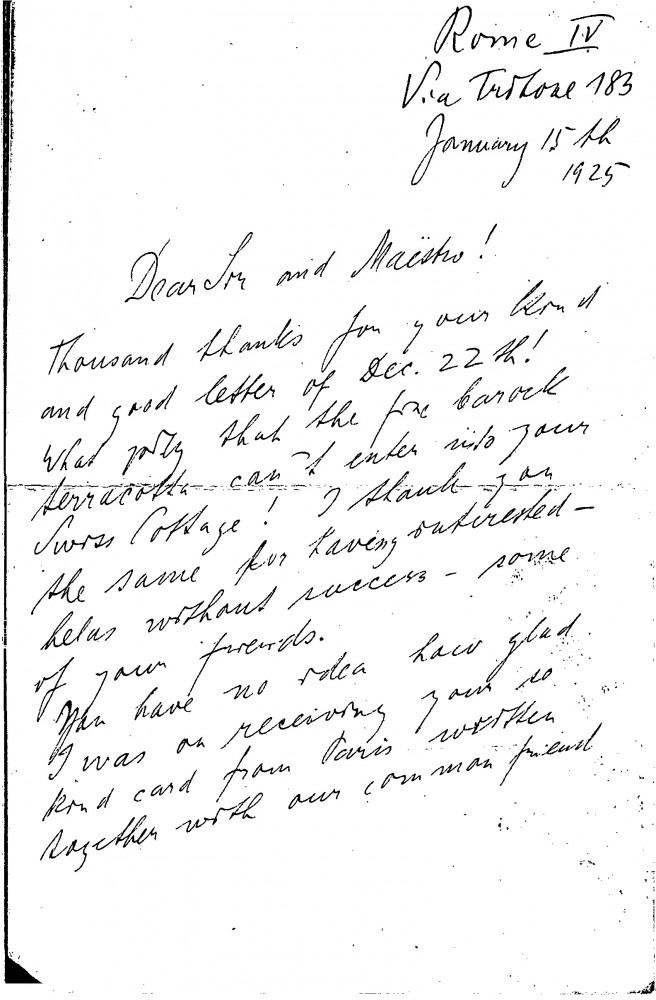 Rome IV
Via Tritone 183
January 15th
1925
Dear Sir and Maëstro!
Thousand thanks for your kind
and good letter of Dec. 22th!
What pity that the fine barock
terracotta can't enter into your
Swiss Cottage! I thank you
the same for having interested –
helas without success – some
of your friends.
You have no idea how glad
I was on receiving your so
kind card from Paris written
together with our common friend